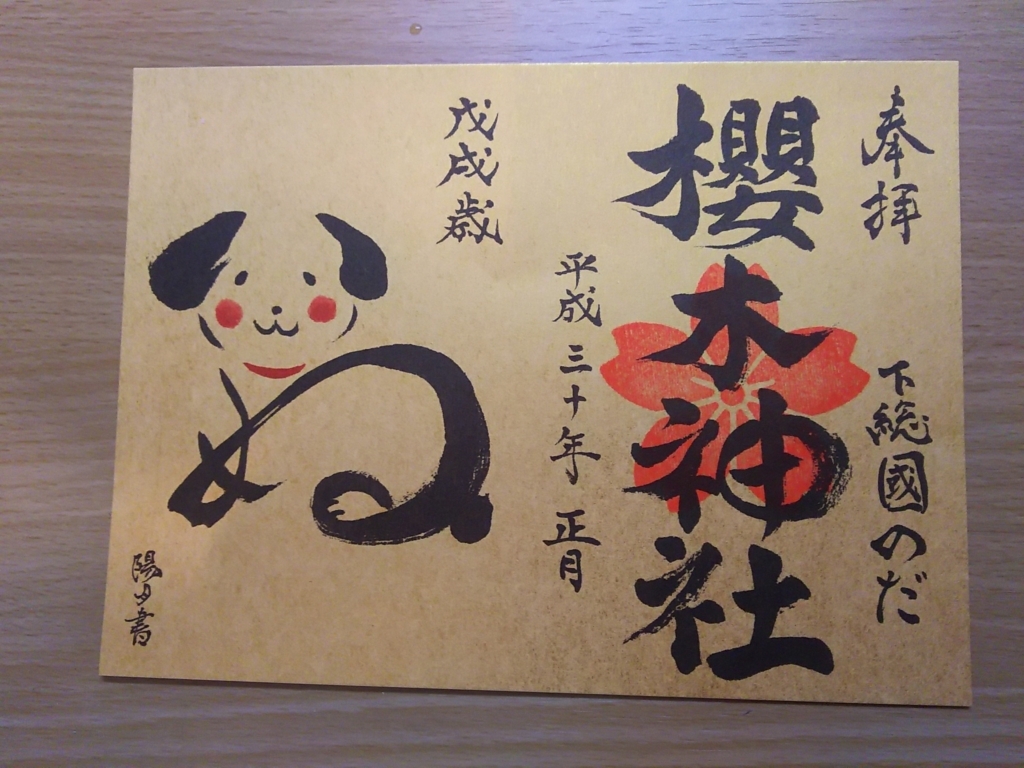 奉拝
下総國のだ
櫻木神社
平成三十年正月
戊戌歳
いぬ
陽月書